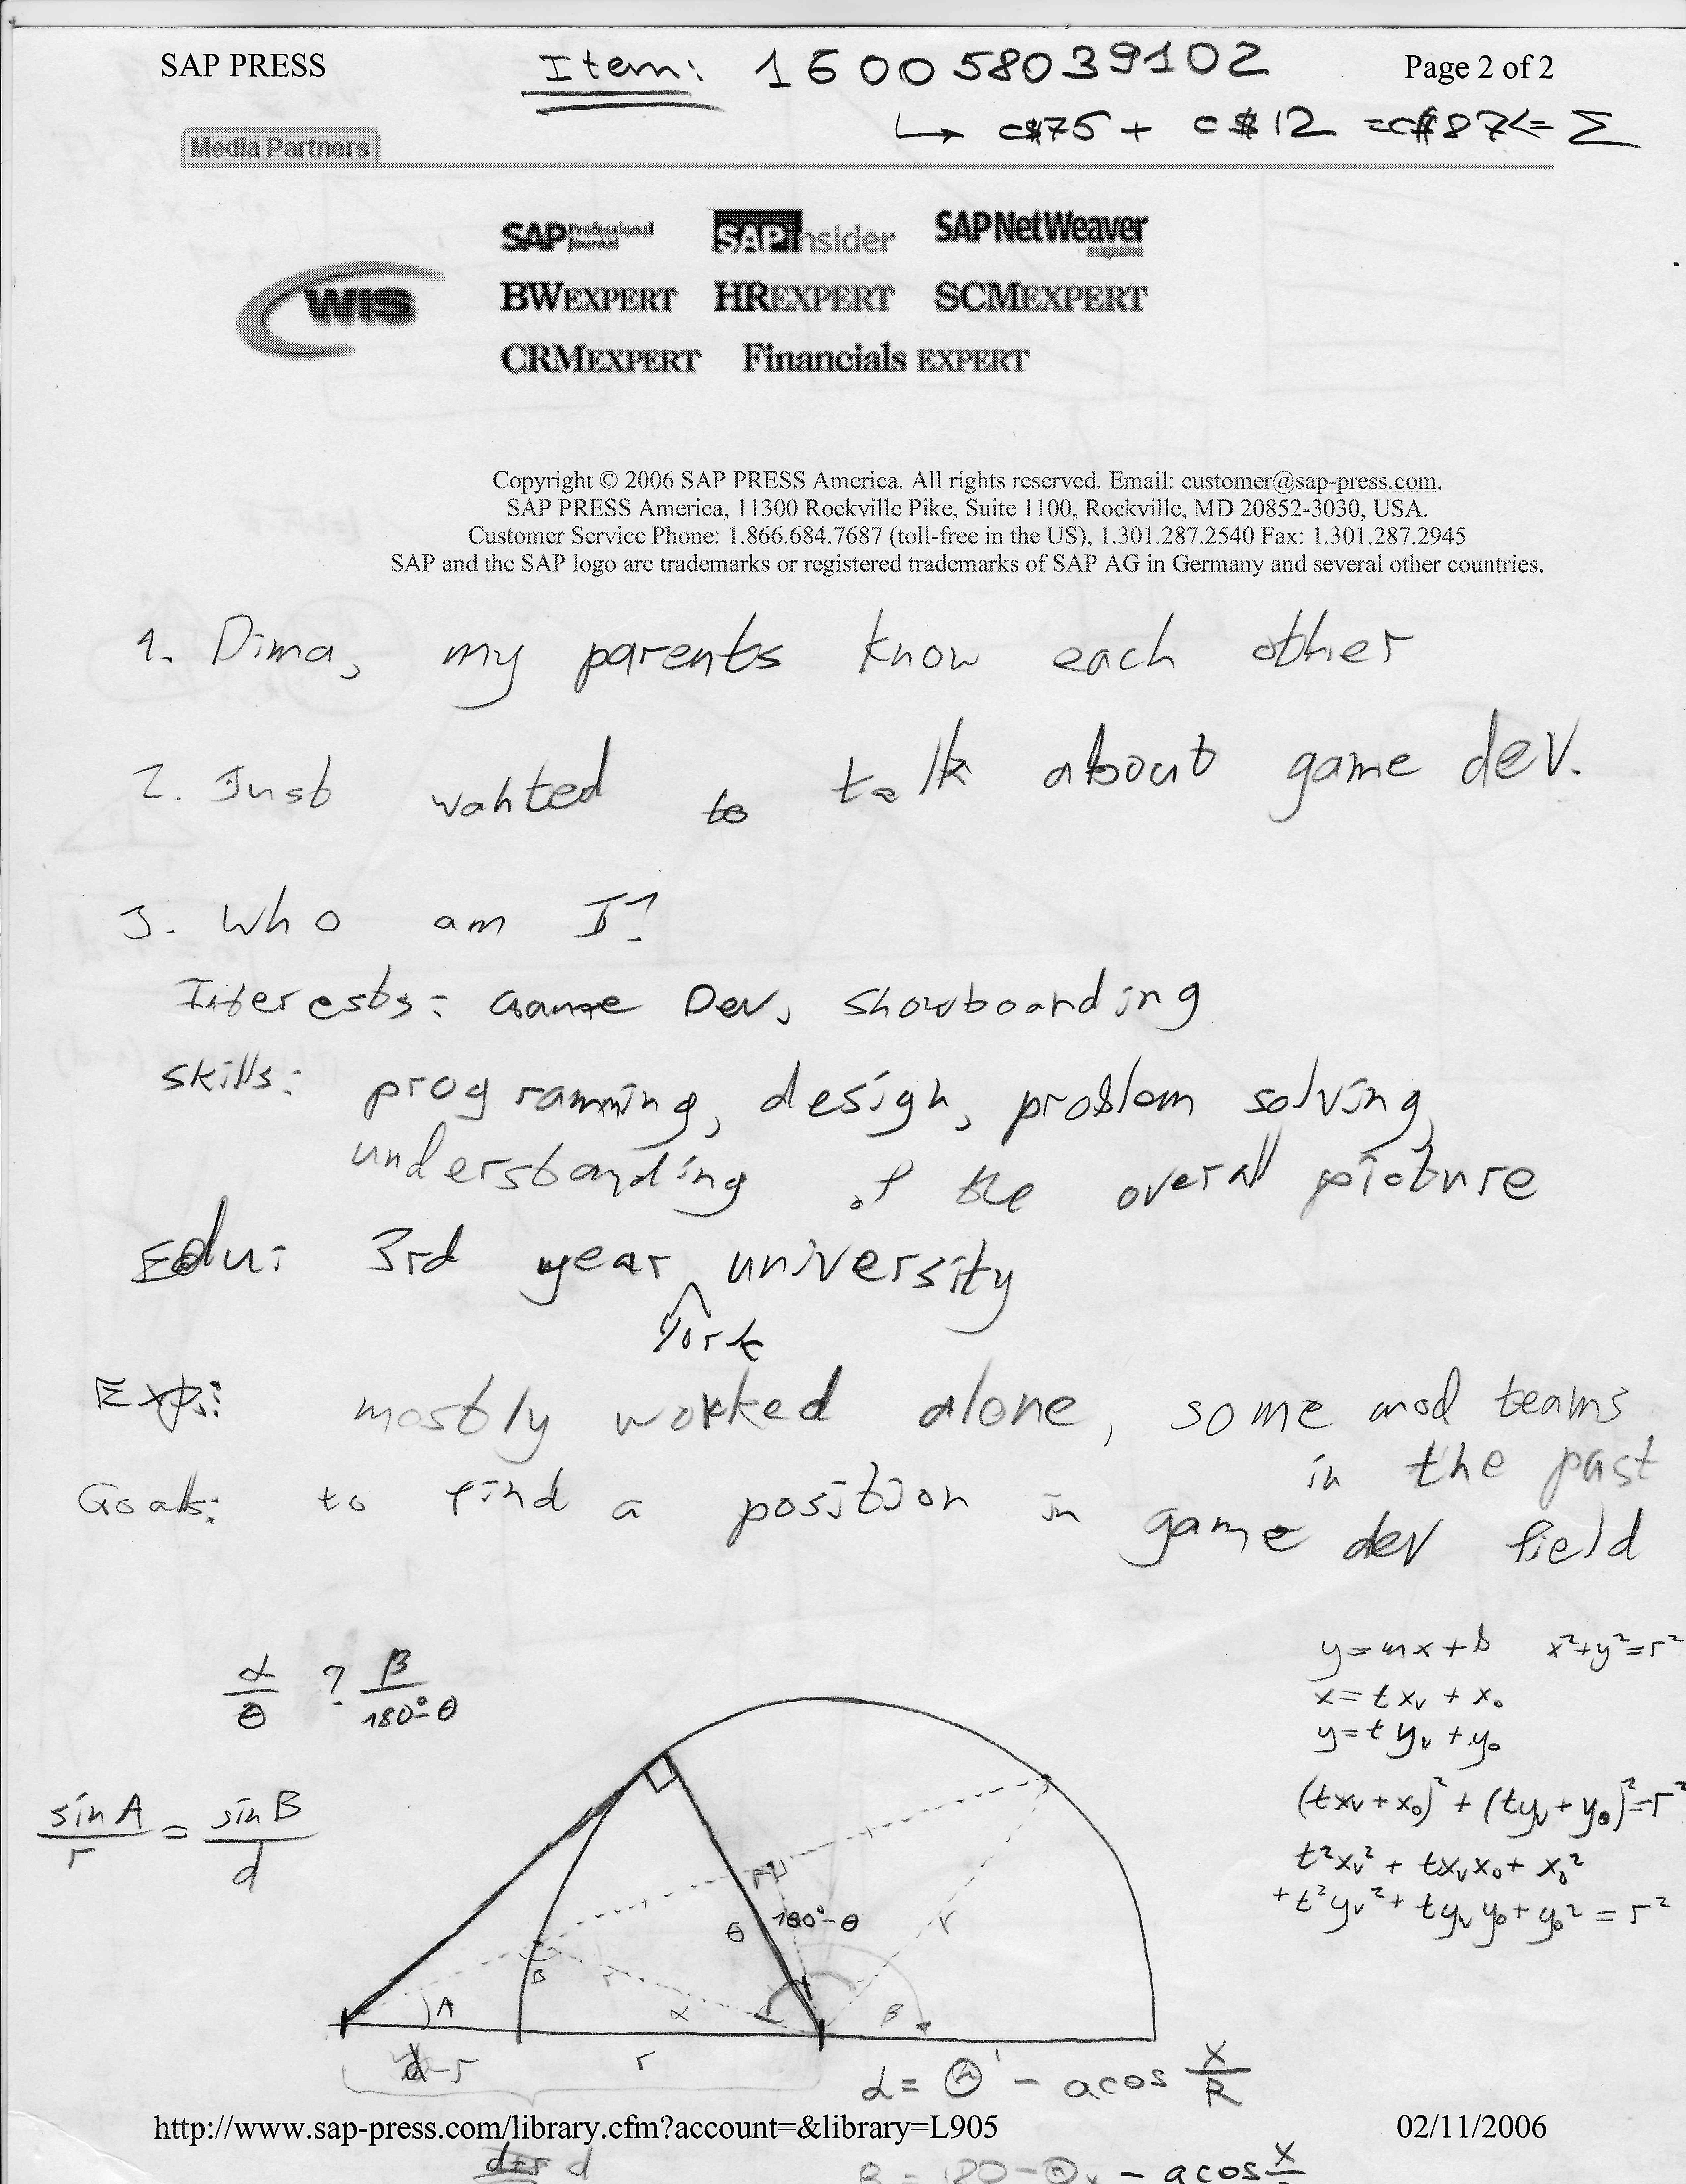 SAP PRESS Item: 160058039102 Page 2 of 2
↳ c$75 + c$12 = c$87 <= Σ
Media Partners
SAP Professional Journal SAP Insider SAP NetWeaver magazine
WIS BWEXPERT HREXPERT SCMEXPERT
CRMEXPERT Financials EXPERT
Copyright © 2006 SAP PRESS America. All rights reserved. Email: customer@sap-press.com.
SAP PRESS America, 11300 Rockville Pike, Suite 1100, Rockville, MD 20852-3030, USA.
Customer Service Phone: 1.866.684.7687 (toll-free in the US), 1.301.287.2540 Fax: 1.301.287.2945
SAP and the SAP logo are trademarks or registered trademarks of SAP AG in Germany and several other countries.
1. Dima, my parents know each other
2. Just wanted to talk about game dev.
3. Who am I?
Interests: Game Dev, showboarding
skills: programming, design, problem solving,
understanding of the overall picture
Edu: 3rd year university
York
Exp.: mostly worked alone, some mod teams
in the past
Goals: to find a position in game dev field
α/θ ? β/180°-θ
sin A/r = sin B/d
y=mx+b x²+y²=r²
x=txᵥ+x₀
y=tyᵥ+y₀
(txᵥ+x₀)²+(tyᵥ+y₀)²=r²
t²xᵥ²+txᵥx₀+x₀²
+t²yᵥ²+tyᵥy₀+y₀²=r²
θ 180°-θ r
B r
A α β
d-r r
α = Θ' - acos X/R
http://www.sap-press.com/library.cfm?account=&library=L905 02/11/2006
d
β = 180-Θ - acos X